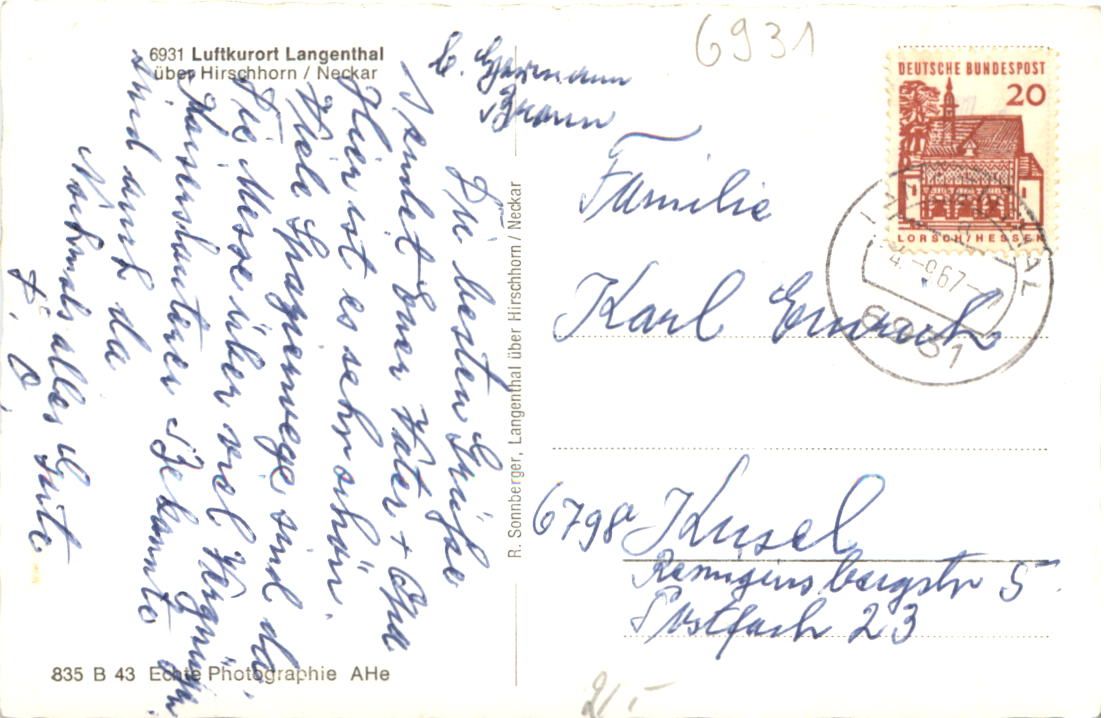 6931 Luftkurort Langenthal
über Hirschhorn / Neckar
Die besten Grüße
sendet Euer Vater + Opa
Hier ist es sehr schön.
Viele Spazierwege sind da.
Die Messe über viel Vergnügen
Kaiserslautrer Bekannte
sind auch da
Nochmals alles Gute
Braun
R. Sonnberger, Langenthal über Hirschhorn / Neckar
835 B 43 Echte Photographie AHe
6931
DEUTSCHE BUNDESPOST
20
LORSCH/HESSEN
67
6931
Familie
Karl Emrich
6798 Kusel
Remigiusbergstr 5
Postfach 23